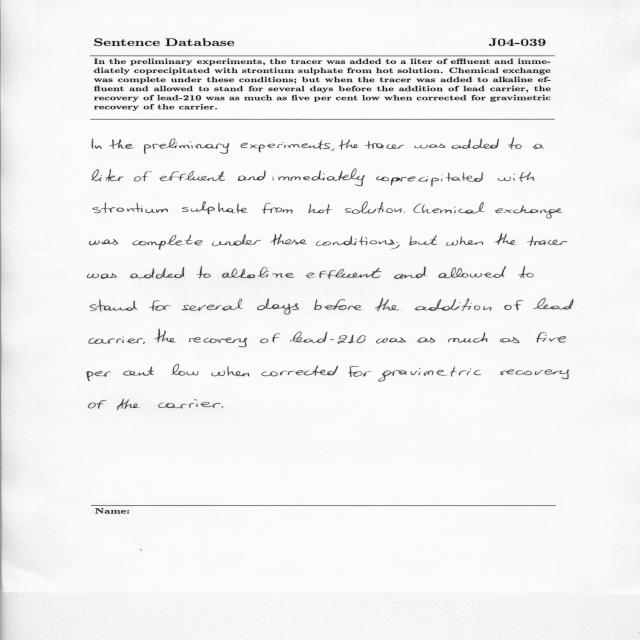 Sentence Database J04-039
In the preliminary experiments, the tracer was added to a liter of effluent and imme-
diately coprecipitated with strontium sulphate from hot solution. Chemical exchange
was complete under these conditions; but when the tracer was added to alkaline ef-
fluent and allowed to stand for several days before the addition of lead carrier, the
recovery of lead-210 was as much as five per cent low when corrected for gravimetric
recovery of the carrier.
In the preliminary experiments, the tracer was added to a
liter of effluent and immediately coprecipitated with
strontium sulphate from hot solution. Chemical exchange
was complete under these conditions; but when the tracer
was added to alkaline effluent and allowed to
stand for several days before the addition of lead
carrier, the recovery of lead-210 was as much as five
per cent low when corrected for gravimetric recovery
of the carrier.
Name: